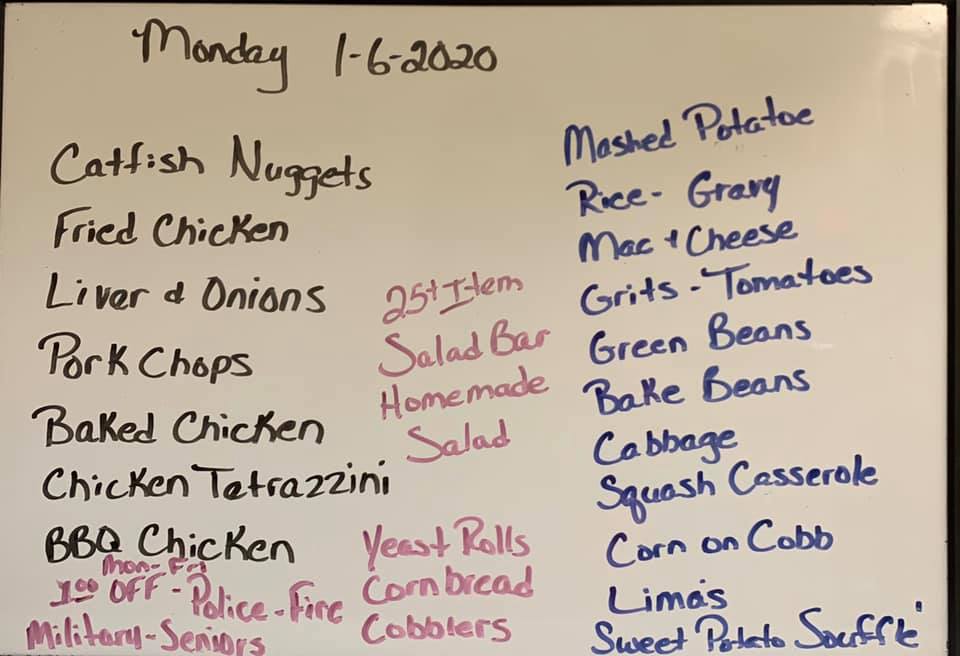 Monday 1-6-2020
Catfish Nuggets
Fried Chicken
Liver & Onions
Pork Chops
Baked Chicken
Chicken Tetrazzini
BBQ Chicken
Mon-Fri
1.00 OFF - Police - Fire
Military - Seniors
25+ Item
Salad Bar
Homemade
Salad
Yeast Rolls
Cornbread
Cobblers
Mashed Potatoe
Rice - Gravy
Mac + Cheese
Grits - Tomatoes
Green Beans
Bake Beans
Cabbage
Squash Casserole
Corn on Cobb
Lima's
Sweet Potato Souffle'